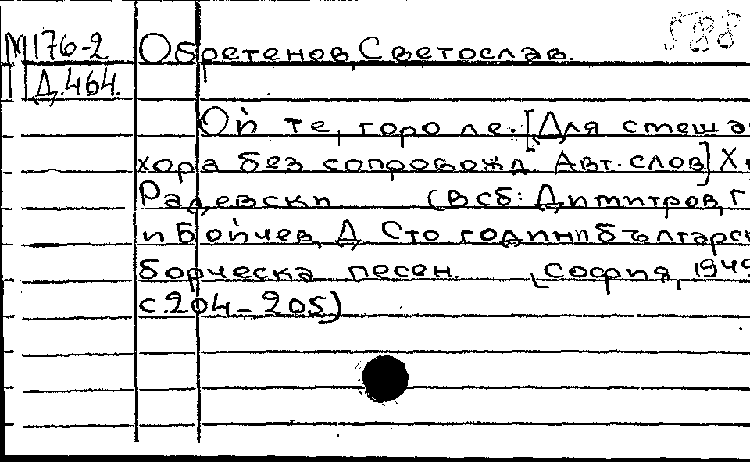 588
М176-2 Обретенов, Светослав.
Д.464.
Ой те, горо ле. [Для смеша
хора без сопровожд. Авт. слов] Х.
Радевски (В сб: Димитров, Г
и Бойчев, Д. Сто годинибългарск
борческа песен. София, 1949
с.204-205)